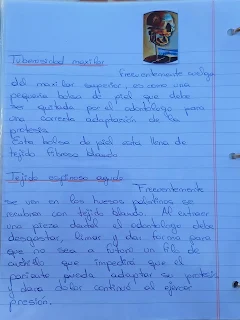 Tuberosidad maxilar
Frecuentemente
del maxilar superior, es como una
pequeña bolsa de piel que debe
ser quitada por el odontólogo para
una correcta adaptación de la
protesis
Esta bolsa de piel esta llena de
tejido fibroso blando
Tejido espinoso agudo
Frecuentemente
se ven en los huesos palatinos se
recubren con tejido blando. Al extraer
una pieza dental el odontologo debe
desgastar, limar y dar forma para
que no sea a futuro un filo de
cuchillo que impedirá que el
paciente pueda adaptar su protesis
y dara dolor continuo al ejercer
presión.